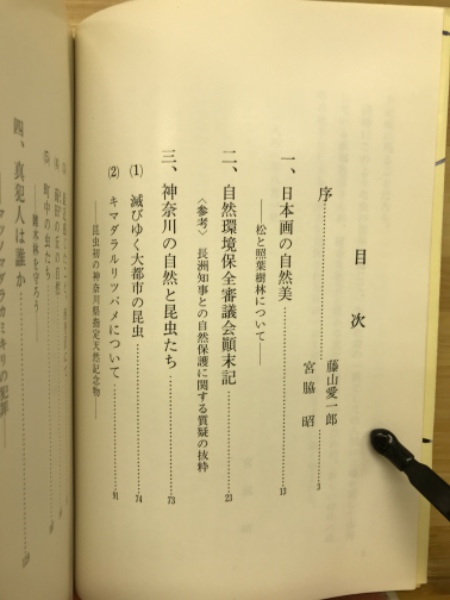 目次
藤山愛一郎
序……………3
宮脇昭
一、日本画の自然美……………13
——松と照葉樹林について——
二、自然環境保全審議会顚末記……………23
〈参考〉長洲知事との自然保護に関する質疑の抜粋
三、神奈川の自然と昆虫たち……………73
(1) 滅びゆく大都市の昆虫……………74
(2) キマダラルリツバメについて……………91
——昆虫初の神奈川県指定天然記念物——
町中の虫たち
——雑木林を守ろう
四、真犯人は誰か